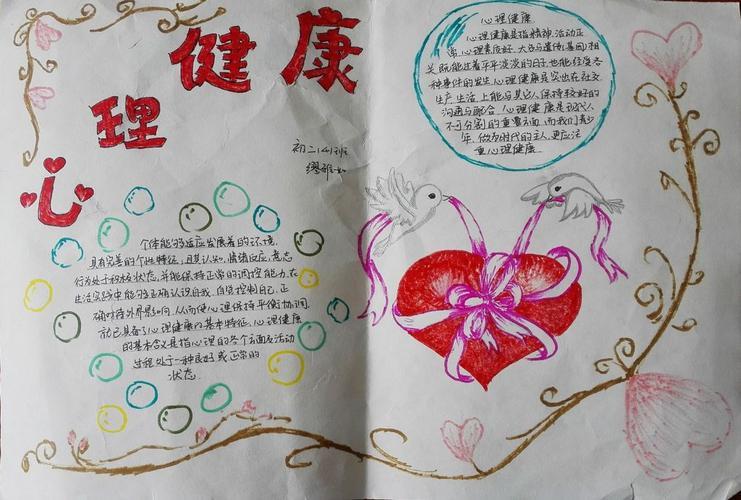 心理健康
初二(4)班
缪雅如
个体能够适应发展着的环境,
具有完善的个性特征,且其认知,情绪反应,意志
行为处于积极状态,并能保持正常的调控能力,在
生活实践中能够正确认识自我,自觉控制自己,正
确对待外界影响,从而使心理保持平衡协调,
就已具备了心理健康的基本特征,心理健康
的基本含义是指心理的各个方面及活动
过程处于一种良好或正常的
状态.
心理健康
心理健康是指精神,活动正
常,心理素质好.大多与遗传(基因)相
关,既能过着平平淡淡的日子,也能经受各
种事件的发生.心理健康突出在社交
生产,生活上能与其它人保持较好的
沟通与配合.心理健康是现代人
不可分割的重要方面,而我们青少
年,做为时代的主人,更应注
重心理健康